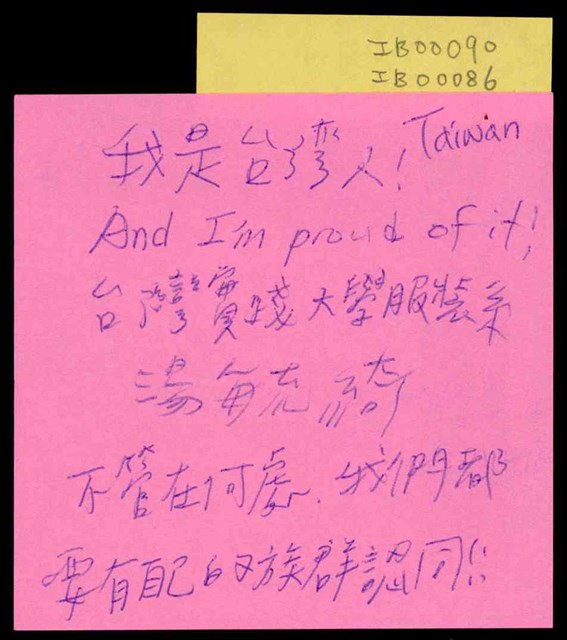 IB00090
IB00086
我是台灣人! Taiwan
And I'm proud of it!
台灣實踐大學服裝系
湯毓綺
不管在何處、我們都
要有自己的族群認同!!